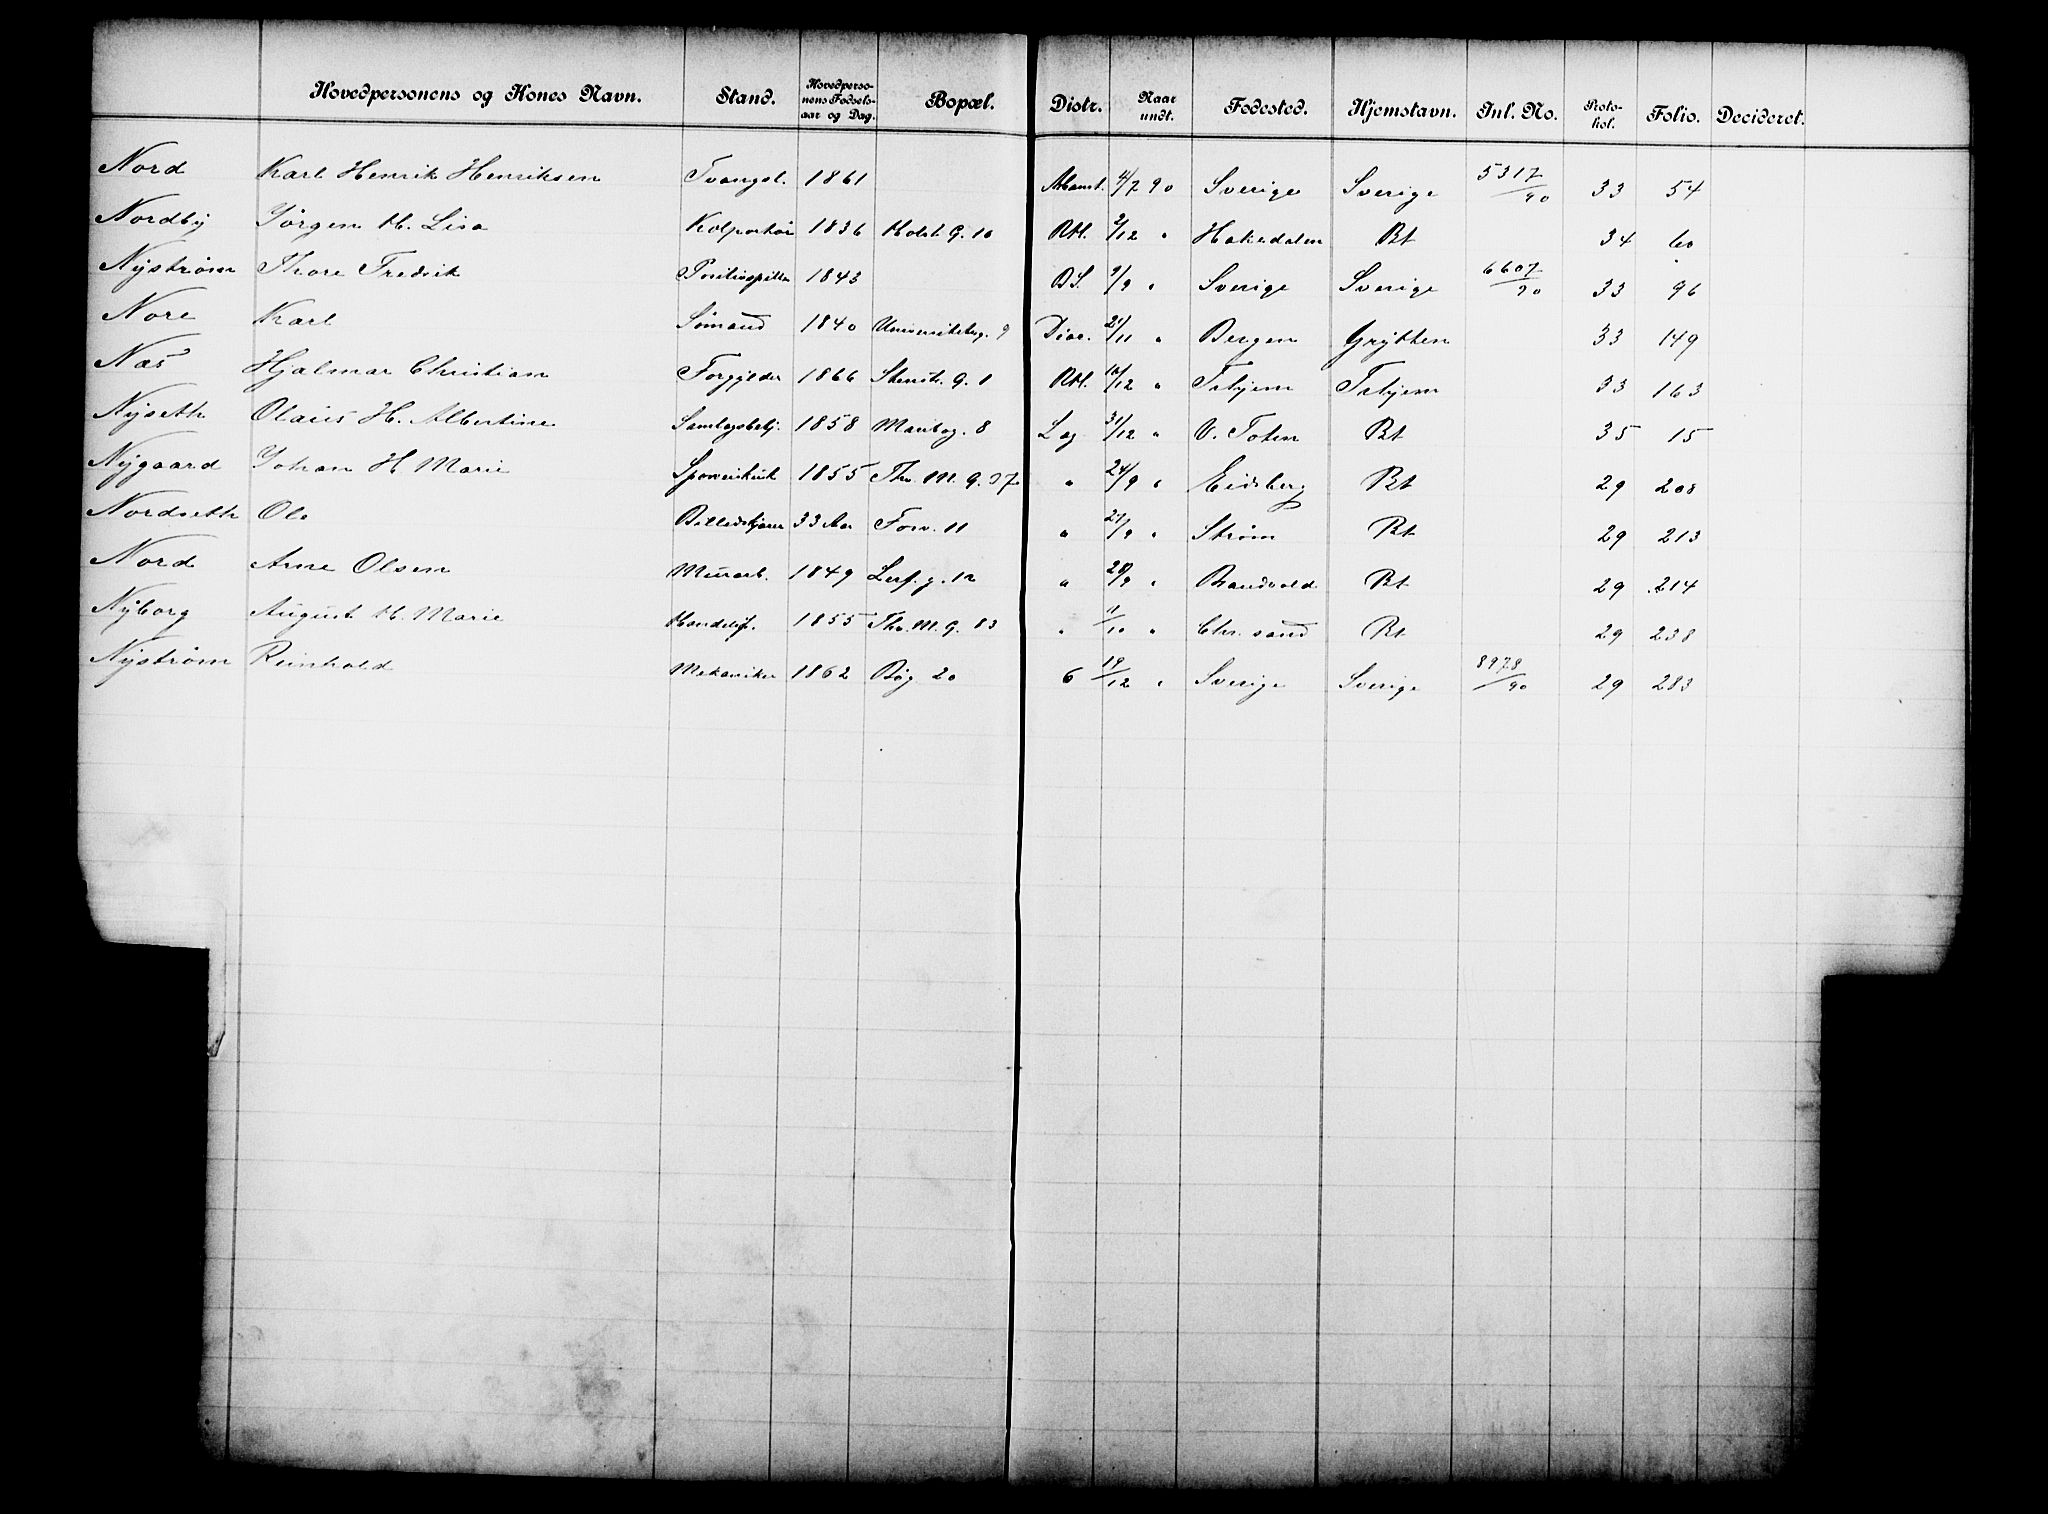 Hovedpersonens og Kones Navn. Stand. Hovedpersonens Fødselsaar og Dag. Bopæl. Distr. Naar undt. Fødested. Hjemstavn. Inl. No. Protokol. Folio. Decideret.
Nord Karl Henrik Henriksen Tvangsl. 1861 4/7 90 Sverige Sverige 5317/90 33 54
Nordby Jörgen H. Lisa Kolportør 1836 Holst. G. 10 Rtl. 2/12 " Hakedalen Bt 34 60
Nyström Thore Fredrik 1843 9/9 " Sverige Sverige 6607/90 33 96
Nore Karl Sömand 1840 Universitetsg. 9 21/11 " Bergen Grytten 33 149
Næs Hjalmar Christian Forgylder 1866 Stenstr. G. 1 Rtl. 10/12 " Trhjem Trhjem 33 163
Nyseth Olaus H. Albertine Samlagsbetj. 1858 Maribog. 8 Lag 31/12 " V. Toten Bt 35 15
Nygaard Johan H Marie Sporveiskusk 1855 Thv. M. G. 97 " 24/9 " Eidsberg Bt 29 208
Nordseth Ole 33 Aar 11 " 27/9 " Ström Bt 29 213
Nord Arne Olsen Murarb. 1849 12 " 28/9 " Brandvold Bt 29 214
Nyborg August H. Marie 1855 Thv. M. G. 83 " 11/10 " Chr. sand Bt 29 238
Nyström Reinhold Mekaniker 1862 Bög. 20 6 19/12 " Sverige Sverige 8978/90 29 283